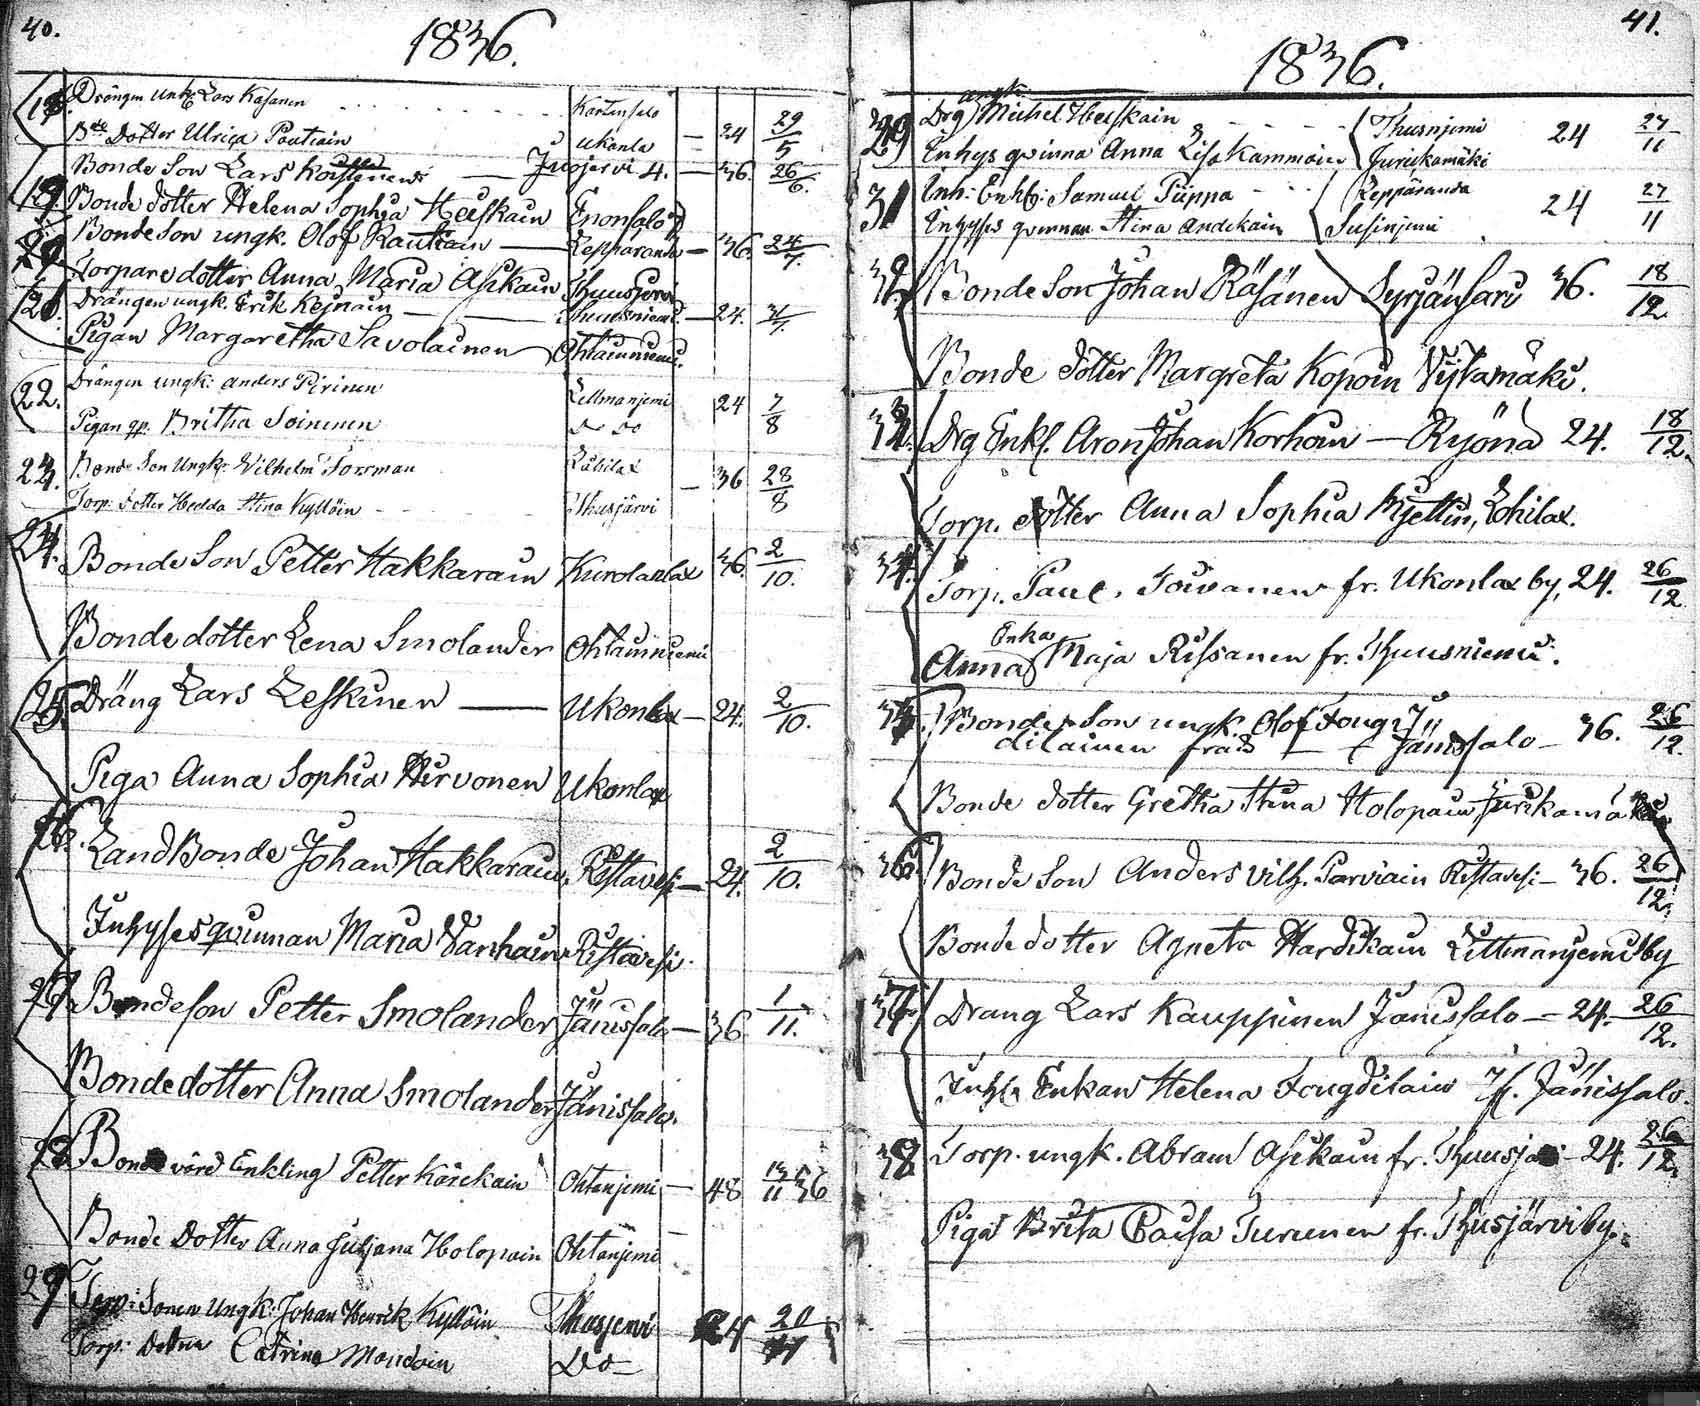 40.
1836.
Drängen Ungk. Lars Kasanen
Bde Dotter Ulrica Poutiain Ukonla — 24 29/5
Bonde Son Lars — Juojervi 4. — 36. 26/6.
19 Bonde dotter Helena Sophia Heiskain Enonsalo
Bonde Son ungk. Olof Rautiain — Lepparanda — 36. 24/7.
Torpare dotter Anna Maria Asikain Thuusjervi
Drängen ungk. Erik — Thuusniemi — 24. 31/7.
Pigan Margaretha Savolainen Ohtainniemi.
22. Drängen ungk: Anders Pirinen Littmanjemi 24 7/8
Pigan qp. Britha Soininen do Do
23. Bonde Son Ungk: Vilhelm Forsman — 36 28/8
Torp: Dotter Hedda Stina Kyllöin Thusjärvi
24. Bonde Son Petter Hakkarain Kurolanlax 36. 2/10.
Bonde dotter Lena Smolander Ohtainniemi
25. Dräng Lars Leskinen — Ukonlax — 24. 2/10.
Piga Anna Sophia Hirvonen Ukonlax
26. Land Bonde Johan Hakkarain, Ristavesi — 24. 2/10.
Inhyses qvinnan Maria Vanhain Ristavesi.
27 Bondeson Petter Smolander Jänissalo — 36. 1/11.
Bondedotter Anna Smolander Jänissalo.
28 Bonde Enkling Petter Kärekain Ohtanjemi — 48 13/11 36
Bonde Dotter Anna Juljana Holopain Ohtanjemi
29 Torp: Sonen Ungk: Johan Henrik Kyllöin Thusjervi 24 20/11
Torp: Dottren Catrina Mondoin Do —
41.
1836.
ungk.
Drg Michel Heiskain Thusnjemi 24 27/11
Inhys qvinna Anna Lisa Kammoin Juriikamäki
31 Inh: Enkl: Samuel Piippa Leppäranda 24 27/11
Inhyses qvinnan Stina Andikain Susinjemi
32 Bonde Son Johan Räsänen Syrjänsari 36. 18/12.
Bonde dotter Margreta Kopoin Vijtamäki.
Drg Enkl. Aron Johan Korhoin — Ryönä 24. 18/12.
Torp. dotter Anna Sophia Lohilax.
34. Torp. Paul Toivanen fr. Ukonlax by, 24. 26/12
Enka
Anna Maja Rissanen fr. Thuusniemi.
35. Bonde Son ungk. Olof Fougi
dilainen från Jänissalo — 36. 26/12.
Bonde dotter Gretha Stina Holopain
36. Bonde Son Anders Vilh. Parviain Ristavesi — 36. 26/12.
Bonde dotter Agneta Hardikain Littmanjemi by
37. Dräng Lars Kauppinen Jänissalo — 24. 26/12.
Inhs Enkan Helena Fougdilain Jänissalo.
38 Torp. ungk. Abram Asikain fr. — 24. 26/12.
Piga Brita Caisa Turunen fr. Thusjärvi by.